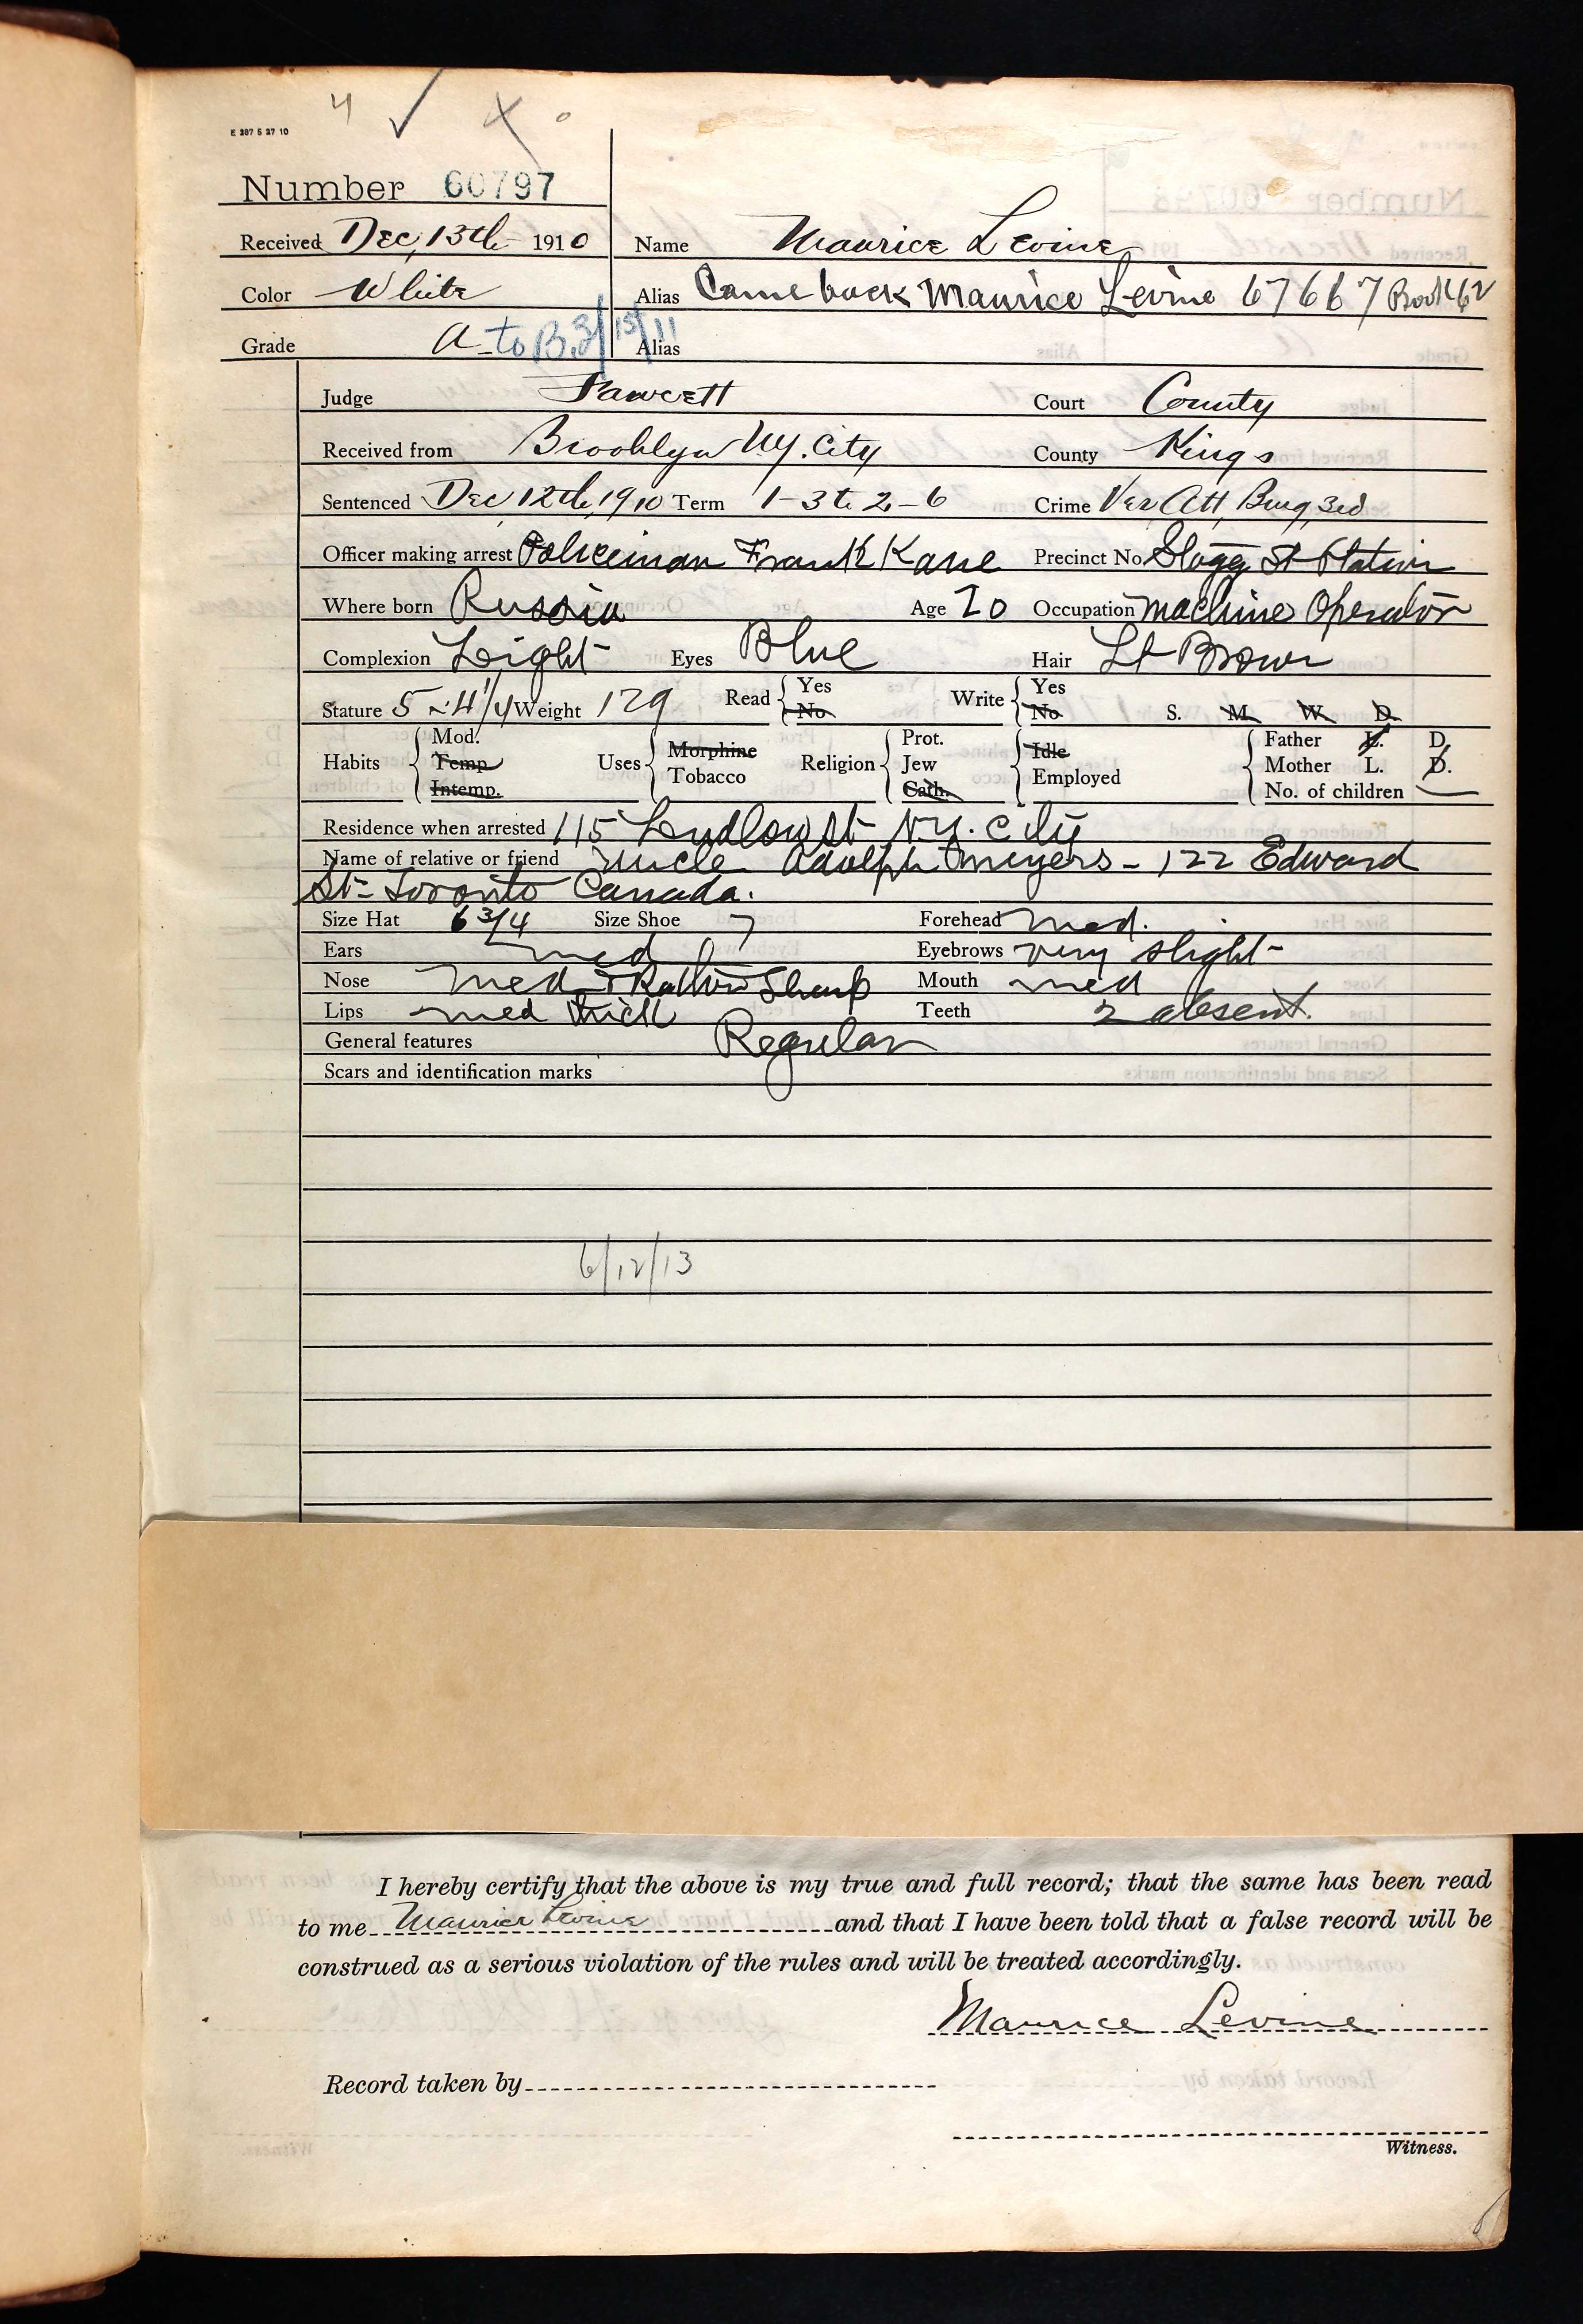 4 ✓ X
E 397 5 27 10
Number 60797
Received Dec, 13th 1910 Name Maurice Levine
Color White Alias Came back Maurice Levine 67667 Book 62
Grade A to B. 3/15/11 Alias
Judge Fawcett Court County
Received from Brooklyn N.Y. City County Kings
Sentenced Dec 12th, 1910 Term 1-3 to 2-6 Crime Att Burg 3rd
Officer making arrest Policeman Frank Kane Precinct No Stagg St Station
Where born Russia Age 20 Occupation machine Operator
Complexion Light Eyes Blue Hair Lt Brown
Stature 5-4 1/4 Weight 129 Read Yes No Write Yes No S. M. W. D.
Habits Mod. Temp. Intemp. Uses Morphine Tobacco Religion Prot. Jew Cath. Idle Employed Father L. D. Mother L. D. No. of children
Residence when arrested 115 Ludlow St N.Y. City
Name of relative or friend uncle Adolph Meyers - 122 Edward
St - Toronto Canada.
Size Hat 6 3/4 Size Shoe 7 Forehead med.
Ears med Eyebrows very slight
Nose med & Rather Sharp Mouth med
Lips med thick Teeth 2 absent.
General features Regular
Scars and identification marks
6/12/13
I hereby certify that the above is my true and full record; that the same has been read
to me Maurice Levine and that I have been told that a false record will be
construed as a serious violation of the rules and will be treated accordingly.
Maurice Levine
Record taken by
Witness.